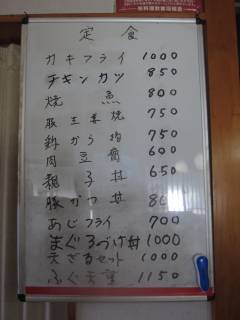 定食
カキフライ 1000
チキンカツ 850
焼魚 800
豚生姜焼 750
鶏から揚 750
肉豆腐 600
親子丼 650
豚かつ丼 800
あじフライ 700
まぐろづけ丼 1000
えざるセット 1000
ふぐ天重 1150